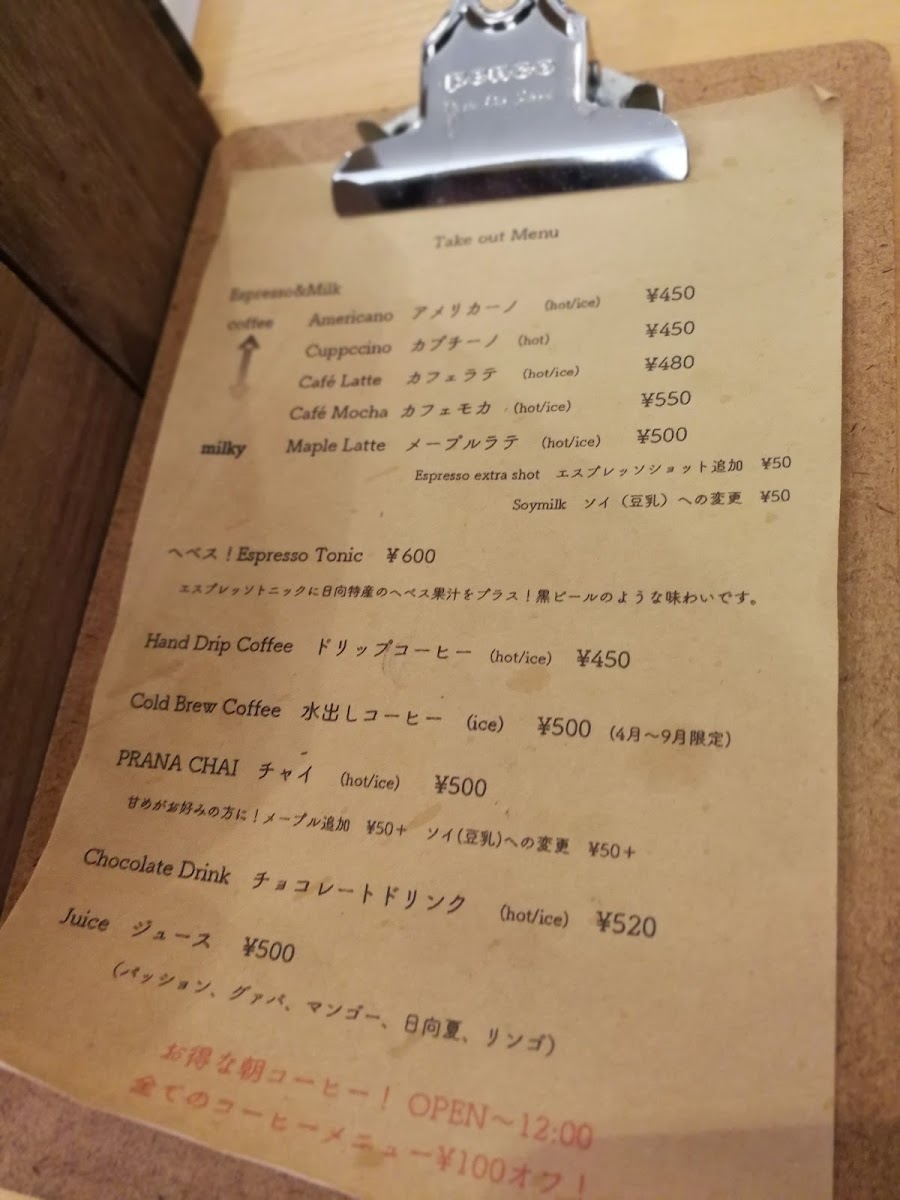 penco
Take out Menu
Espresso&Milk
coffee Americano アメリカーノ (hot/ice) ¥450
Cuppccino カプチーノ (hot) ¥450
Café Latte カフェラテ (hot/ice) ¥480
Café Mocha カフェモカ (hot/ice) ¥550
milky Maple Latte メープルラテ (hot/ice) ¥500
Espresso extra shot エスプレッソショット追加 ¥50
Soymilk ソイ（豆乳）への変更 ¥50
ヘベス！Espresso Tonic ¥600
エスプレッソトニックに日向特産のヘベス果汁をプラス！黒ビールのような味わいです。
Hand Drip Coffee ドリップコーヒー (hot/ice) ¥450
Cold Brew Coffee 水出しコーヒー (ice) ¥500 (4月～9月限定)
PRANA CHAI チャイ (hot/ice) ¥500
甘めがお好みの方に！メープル追加 ¥50＋ ソイ(豆乳)への変更 ¥50＋
Chocolate Drink チョコレートドリンク (hot/ice) ¥520
Juice ジュース ¥500
(パッション、グァバ、マンゴー、日向夏、リンゴ)
お得な朝コーヒー！ OPEN～12:00
全てのコーヒーメニュー¥100オフ！